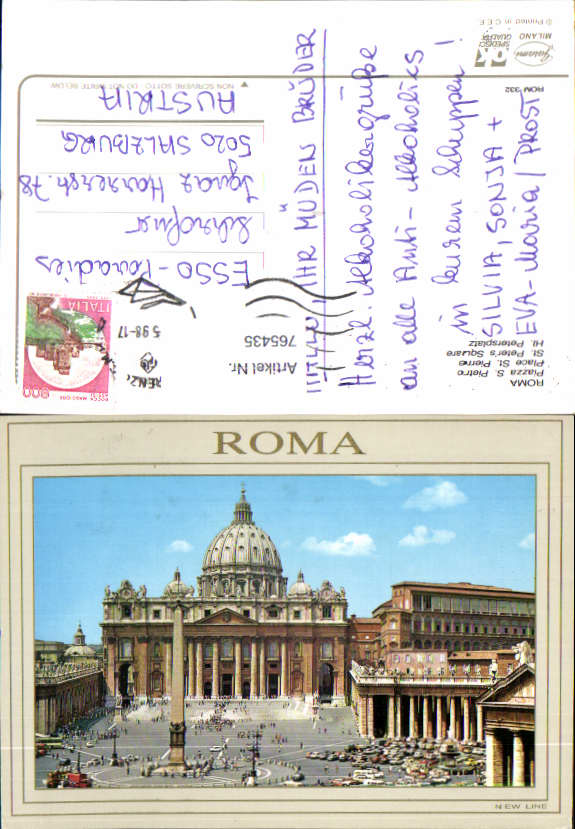 HALLO, IHR MÜDEN BRÜDER
Herzl. Alkoholikergrüße
an alle Anti-Alkoholics
in eurem Schuppen!
SILVIA, SONJA +
EVA-MARIA / PROST
ROMA
Piazza S. Pietro
Place St. Pierre
St. Peter's Square
Hl. Petersplatz
ROM 332
MILANO
SPEDISCI
QUALITÀ
© Printed in C.E.E.
NON SCRIVERE SOTTO
DO NOT WRITE BELOW
ESSO-Paradies
5020 SALZBURG
AUSTRIA
ITALIA
800
ROCCA MAGGIORE
5 98-17
Artikel Nr.
765435
ROMA
NEW LINE